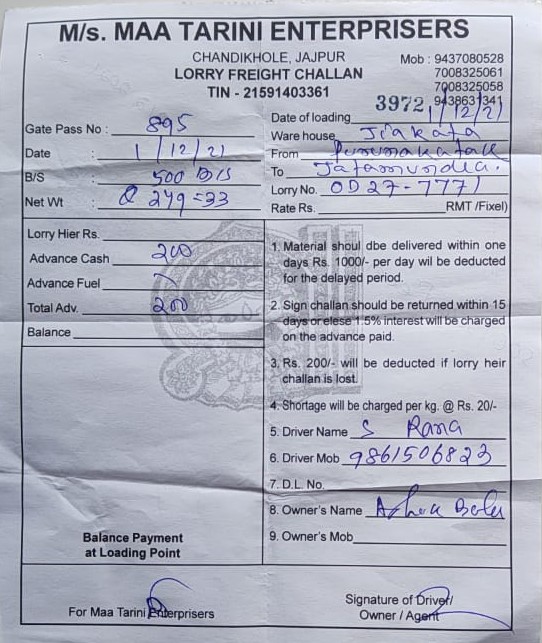 M/s. MAA TARINI ENTERPRISERS
CHANDIKHOLE, JAJPUR
LORRY FREIGHT CHALLAN
TIN - 21591403361
Mob : 9437080528
7008325061
7008325058
9438631341
3972
Gate Pass No : 895
Date : 1/12/21
B/S : 500 B/S
Net Wt : Q 249=33
Date of loading 1/12/21
Ware house
From
To
Lorry No. OD27-7771
Rate Rs. RMT /Fixel)
Lorry Hier Rs.
Advance Cash 200
Advance Fuel
Total Adv. 200
Balance
Balance Payment
at Loading Point
1. Material shoul dbe delivered within one
days Rs. 1000/- per day wil be deducted
for the delayed period.
2. Sign challan should be returned within 15
days or elese 1.5% interest will be charged
on the advance paid.
3. Rs. 200/- will be deducted if lorry heir
challan is lost.
4. Shortage will be charged per kg. @ Rs. 20/-
5. Driver Name S Rana
6. Driver Mob 9861506823
7. D.L. No.
8. Owner's Name
9. Owner's Mob
For Maa Tarini Enterprisers
Signature of Driver/
Owner / Agent